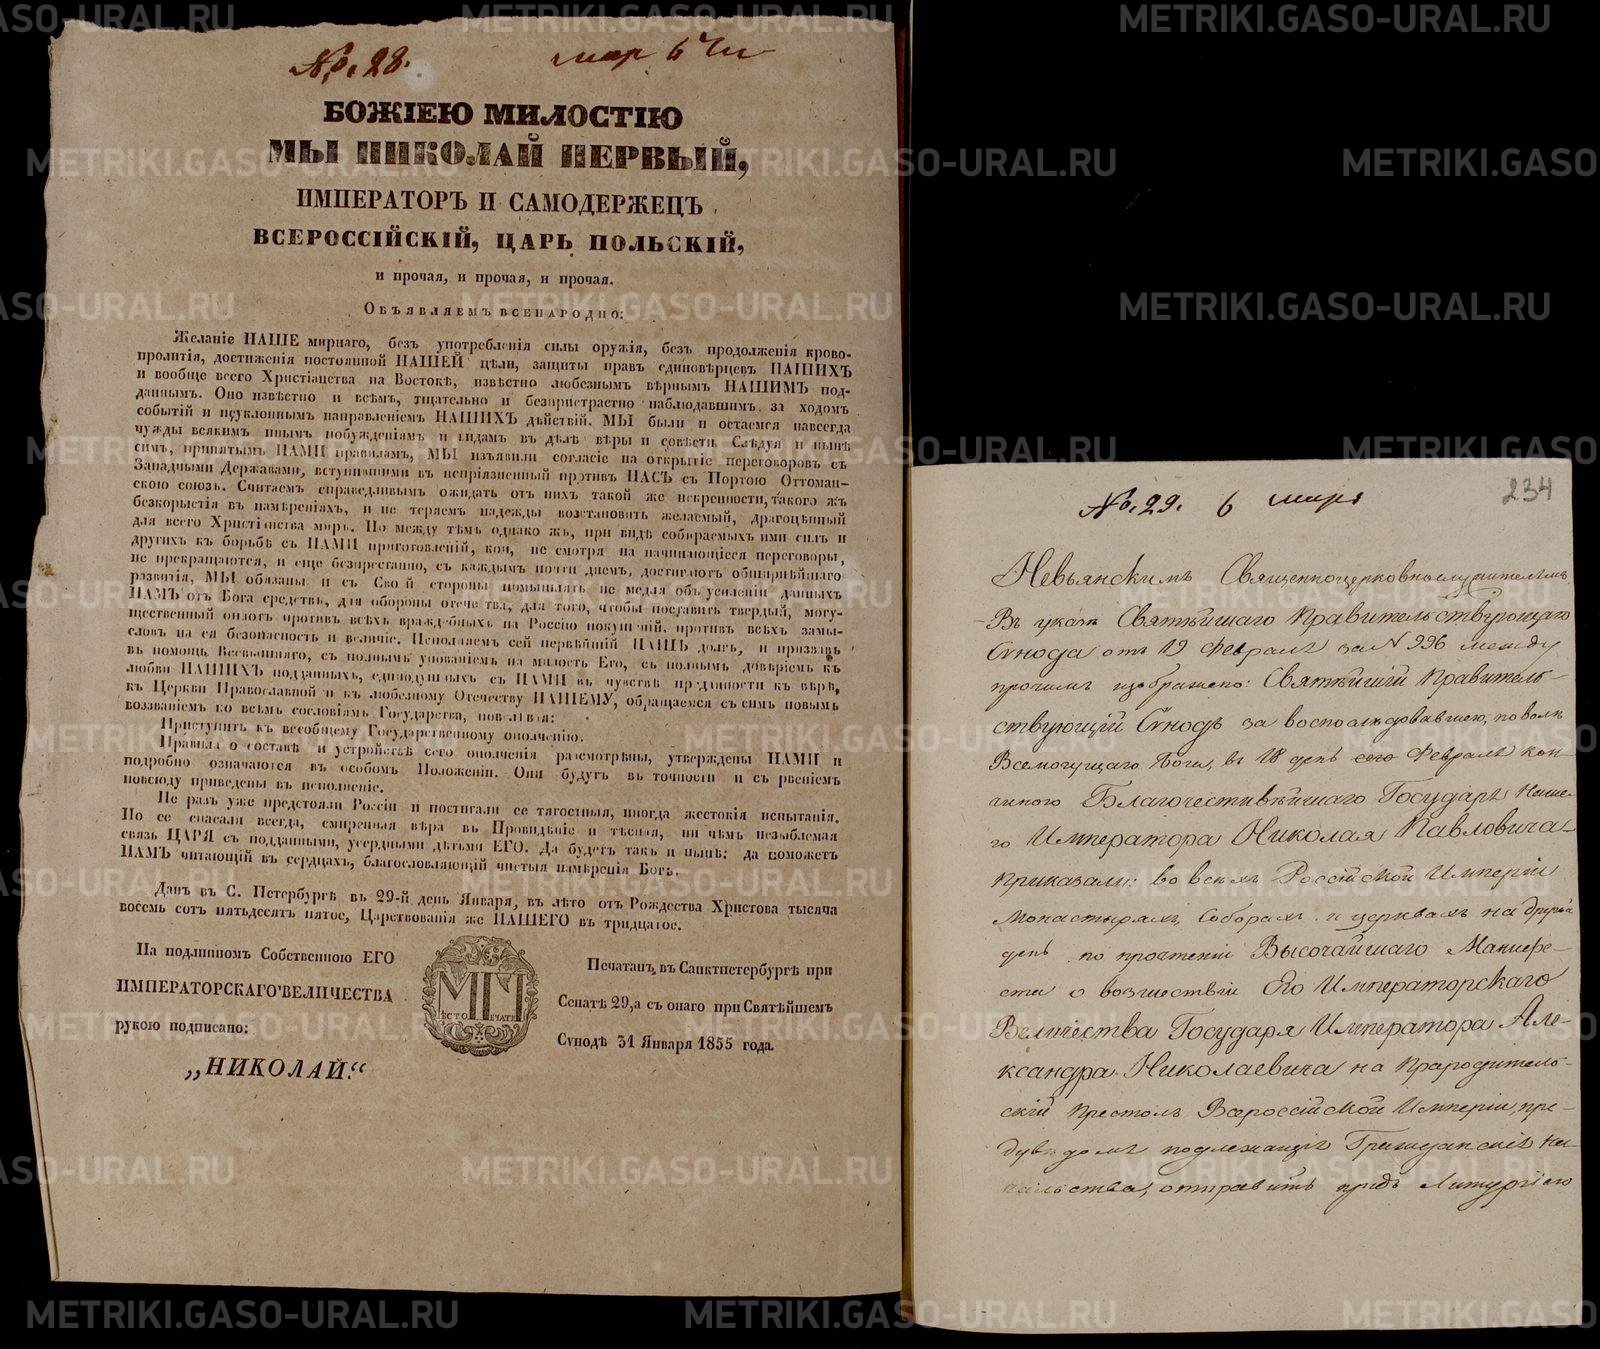 № 28. мар 6 Чи
БОЖІЕЮ МИЛОСТІЮ
МЫ НИКОЛАЙ ПЕРВЫЙ,
ИМПЕРАТОРЪ И САМОДЕРЖЕЦЪ
ВСЕРОССІЙСКІЙ, ЦАРЬ ПОЛЬСКІЙ,
и прочая, и прочая, и прочая.
Объявляемъ всенародно:
Желаніе НАШЕ мирнаго, безъ употребленія силы оружія, безъ продолженія крово-
пролитія, достиженія постоянной НАШЕЙ цѣли, защиты правъ единовѣрцевъ НАШИХЪ
и вообще всего Христіанства на Востокѣ, извѣстно любезнымъ вѣрнымъ НАШИМЪ под-
даннымъ. Оно извѣстно и всѣмъ, тщательно и безпристрастно наблюдавшимъ за ходомъ
событій и неуклоннымъ направленіемъ НАШИХЪ дѣйствій. МЫ были и остаемся навсегда
чужды всякимъ инымъ побужденіямъ и видамъ въ дѣлѣ вѣры и совѣсти. Слѣдуя и нынѣ
симъ, принятымъ НАМИ правиламъ, МЫ изъявили согласіе на открытіе переговоровъ съ
Западными Державами, вступившими въ непріязненный противъ НАСЪ съ Портою Оттоман-
скою союзъ. Считаемъ справедливымъ ожидать отъ нихъ такой же искренности, такого жъ
безкорыстія въ намѣреніяхъ, и не теряемъ надежды возстановить желаемый, драгоцѣнный
для всего Христіанства миръ. Но между тѣмъ однако жъ, при видѣ собираемыхъ ими силъ и
другихъ къ борьбѣ съ НАМИ приготовленій, кои, не смотря на начинающіеся переговоры,
не прекращаются, и еще безпрестанно, съ каждымъ почти днемъ, достигаютъ обширнѣйшаго
развитія, МЫ обязаны и съ Своей стороны помышлять не медля объ усиленіи данныхъ
НАМЪ отъ Бога средствъ, для обороны отечества, для того, чтобы поставить твердый, могу-
щественный оплотъ противъ всѣхъ враждебныхъ на Россію покушеній, противъ всѣхъ замы-
словъ на ея безопасность и величіе. Исполняемъ сей первѣйшій НАШЪ долгъ, и призвавъ
въ помощь Всевышняго, съ полнымъ упованіемъ на милость Его, съ полнымъ довѣріемъ къ
любви НАШИХЪ подданныхъ, единодушныхъ съ НАМИ въ чувствѣ преданности къ вѣрѣ,
къ Церкви Православной и къ любезному Отечеству НАШЕМУ, обращаемся съ симъ новымъ
воззваніемъ ко всѣмъ сословіямъ Государства, повелѣвая:
Приступить къ всеобщему Государственному ополченію.
Правила о составѣ и устройствѣ сего ополченія разсмотрѣны, утверждены НАМИ и
подробно означаются въ особомъ Положеніи. Они будутъ въ точности и съ рвеніемъ
повсюду приведены въ исполненіе.
Не разъ уже предстояли Россіи и постигали ее тягостныя, иногда жестокія испытанія.
Но ее спасали всегда, смиренная вѣра въ Провидѣніе и тѣсная, ни чѣмъ незыблемая
связь ЦАРЯ съ подданными, усердными дѣтьми ЕГО. Да будетъ такъ и нынѣ: да поможетъ
НАМЪ читающій въ сердцахъ, благословляющій чистыя намѣренія Богъ.
Данъ въ С. Петербургѣ въ 29-й день Января, въ лѣто отъ Рождества Христова тысяча
восемь сотъ пятьдесятъ пятое, Царствованія же НАШЕГО въ тридцатое.
На подлинномъ Собственною ЕГО
ИМПЕРАТОРСКАГО ВЕЛИЧЕСТВА
рукою подписано:
„НИКОЛАЙ.“
МѢСТО ПЕЧАТИ
Печатанъ въ Санктпетербургѣ при
Сенатѣ 29, а съ онаго при Святѣйшемъ
Сѵнодѣ 31 Января 1855 года.
№. 29. 6 мар
234
Невьянскимъ Священноцерковнослужителямъ
Въ указѣ Святѣйшаго Правительствующаго
Сѵнода отъ 19 Февраля за № 996 между
прочимъ изображено: Святѣйшій Правитель-
ствующій Сѵнодъ за воспослѣдовавшею, по волѣ
Всемогущаго Бога, въ 18 день сего Февраля кон-
чиною Благочестивѣйшаго Государя Наше-
го Императора Николая Павловича
Приказали: во всѣхъ Россійской Имперіи
Монастыряхъ, Соборахъ и церквахъ на другой
день по прочтеніи Высочайшаго Манифе-
ста о возшествіи Его Императорскаго
Величества Государя Императора Але-
ксандра Николаевича на Прародитель-
скій Престолъ Всероссійской Имперіи, пре-
дувѣдомя подлежащія Гражданскія На-
чальства, отправить предъ Литургіею
METRIKI.GASO-URAL.RU